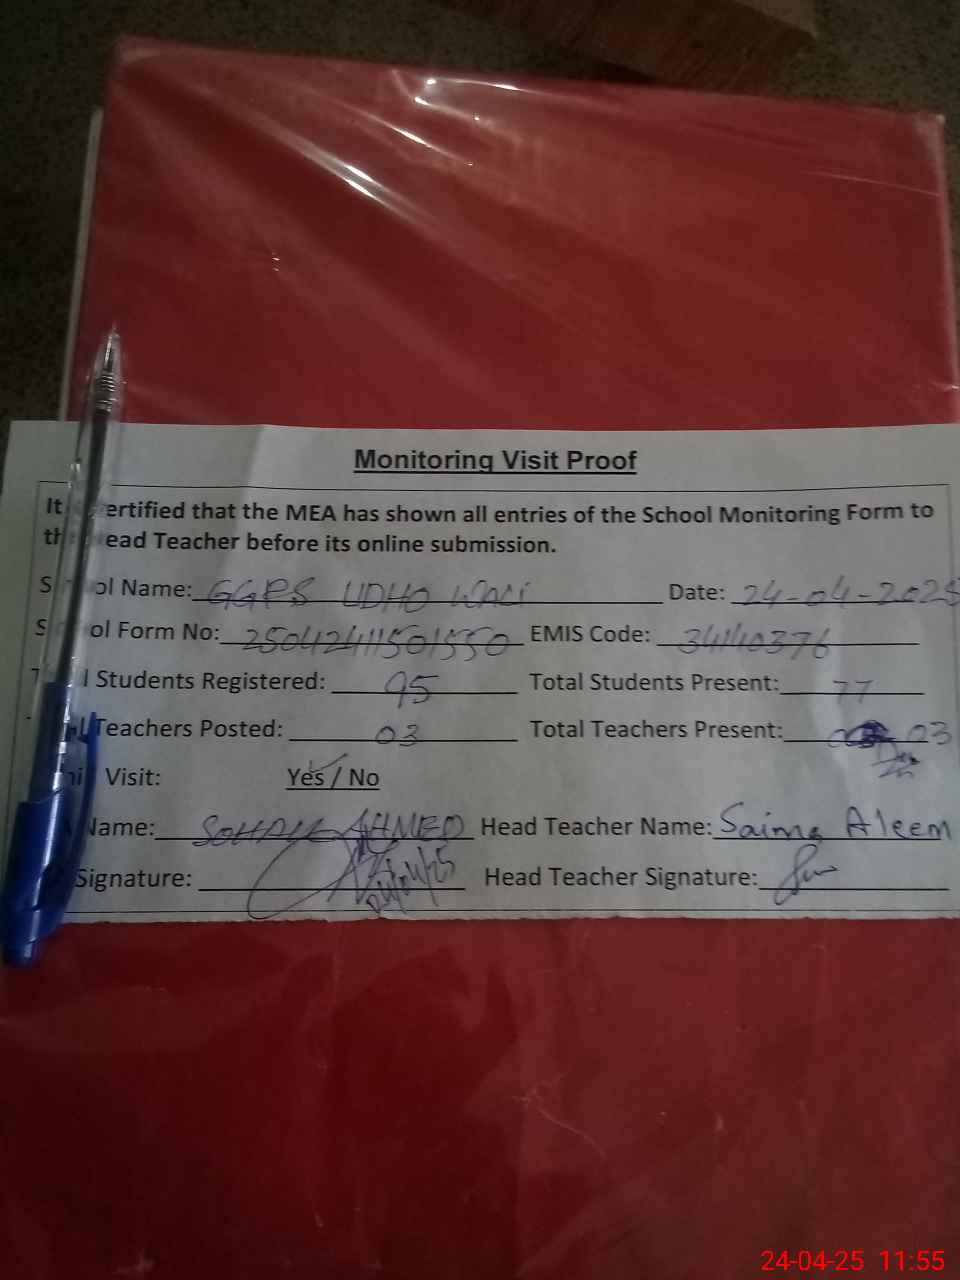 Monitoring Visit Proof
It ertified that the MEA has shown all entries of the School Monitoring Form to
th ead Teacher before its online submission.
S ol Name: GGPS UDHO WALI Date: 24-04-2025
S ol Form No: 25042411501550 EMIS Code: 34140376
T l Students Registered: 95 Total Students Present: 77
Teachers Posted: 03 Total Teachers Present: 03
Visit: Yes / No
Name: SOHAIL AHMED Head Teacher Name: Saima Aleem
Signature: 24/04/25 Head Teacher Signature:
24-04-25 11:55